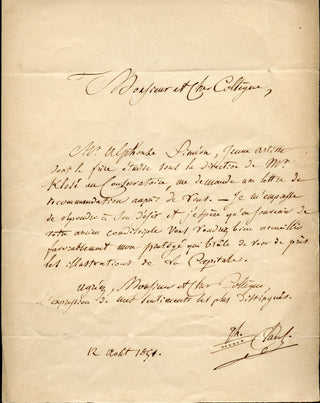 Monsieur et Cher Collègue,
Mr. Alphonse Siméon, jeune artiste
dont le frère étudie sous la direction de Mr
Klosé au Conservatoire, me demande une lettre de
recommandation auprès de vous. — Je m'empresse
de répondre à son désir et j'espère qu'en souvenir de
votre ancien condisciple vous voudrez bien accueillir
favorablement mon protégé qui brûle de voir de près
les illustrations de la Capitale.
Agréez, Monsieur et Cher Collègue,
l'expression de mes sentiments les plus distingués.
12 Août